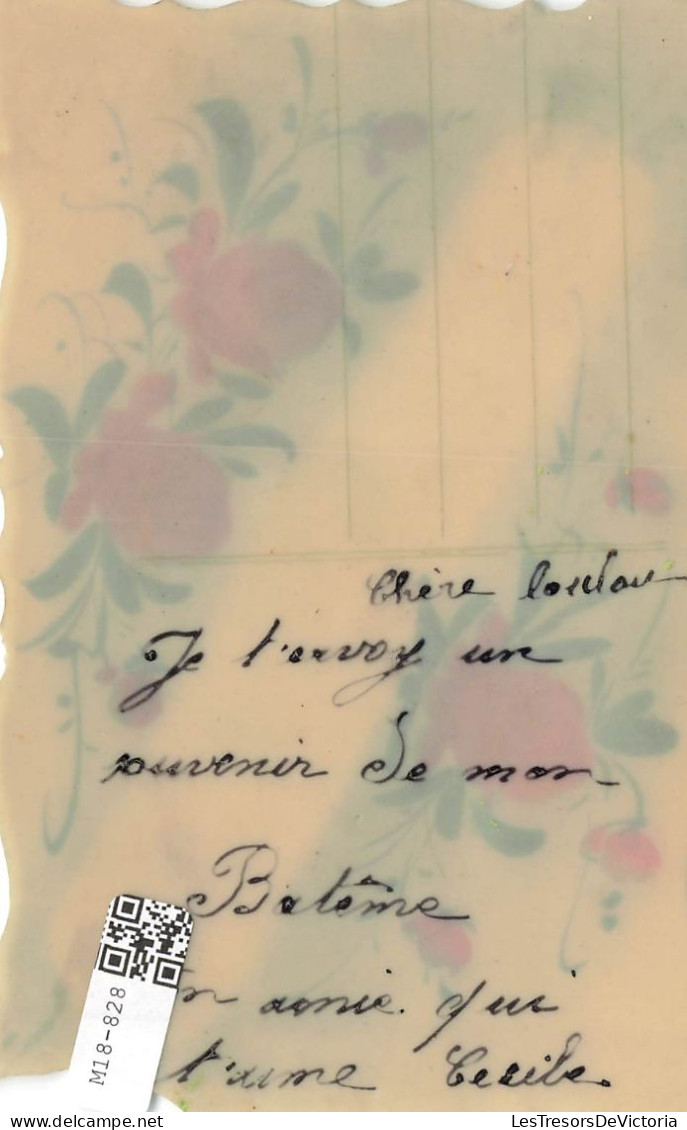 Chère Loulou
Je t'envoy un
souvenir de mon
Batême
amie. qui
t'aime Cecile.
M18-828
LesTresorsDeVictoria